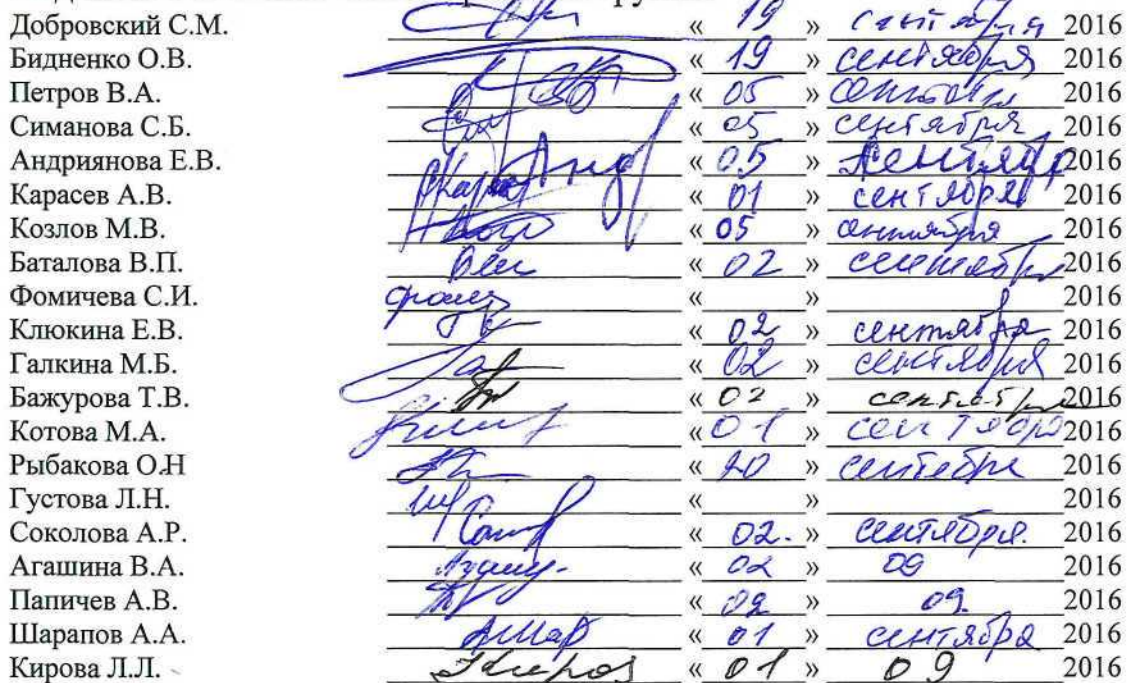 Добровский С.М. « 19 » сентября 2016
Бидненко О.В. « 19 » сентября 2016
Петров В.А. « 05 » сентября 2016
Симанова С.Б. « 05 » сентября 2016
Андриянова Е.В. « 05 » сентябр 2016
Карасев А.В. « 01 » сентября 2016
Козлов М.В. « 05 » сентября 2016
Баталова В.П. « 02 » сентября 2016
Фомичева С.И. « » 2016
Клюкина Е.В. « 02 » сентября 2016
Галкина М.Б. « 02 » сентября 2016
Бажурова Т.В. « 02 » сентября 2016
Котова М.А. « 01 » сентября 2016
Рыбакова О.Н « 20 » сентября 2016
Густова Л.Н. « » 2016
Соколова А.Р. « 02. » сентября. 2016
Агашина В.А. « 02 » 09 2016
Папичев А.В. « 02 » 09. 2016
Шарапов А.А. « 01 » сентября 2016
Кирова Л.Л. « 01 » 09 2016